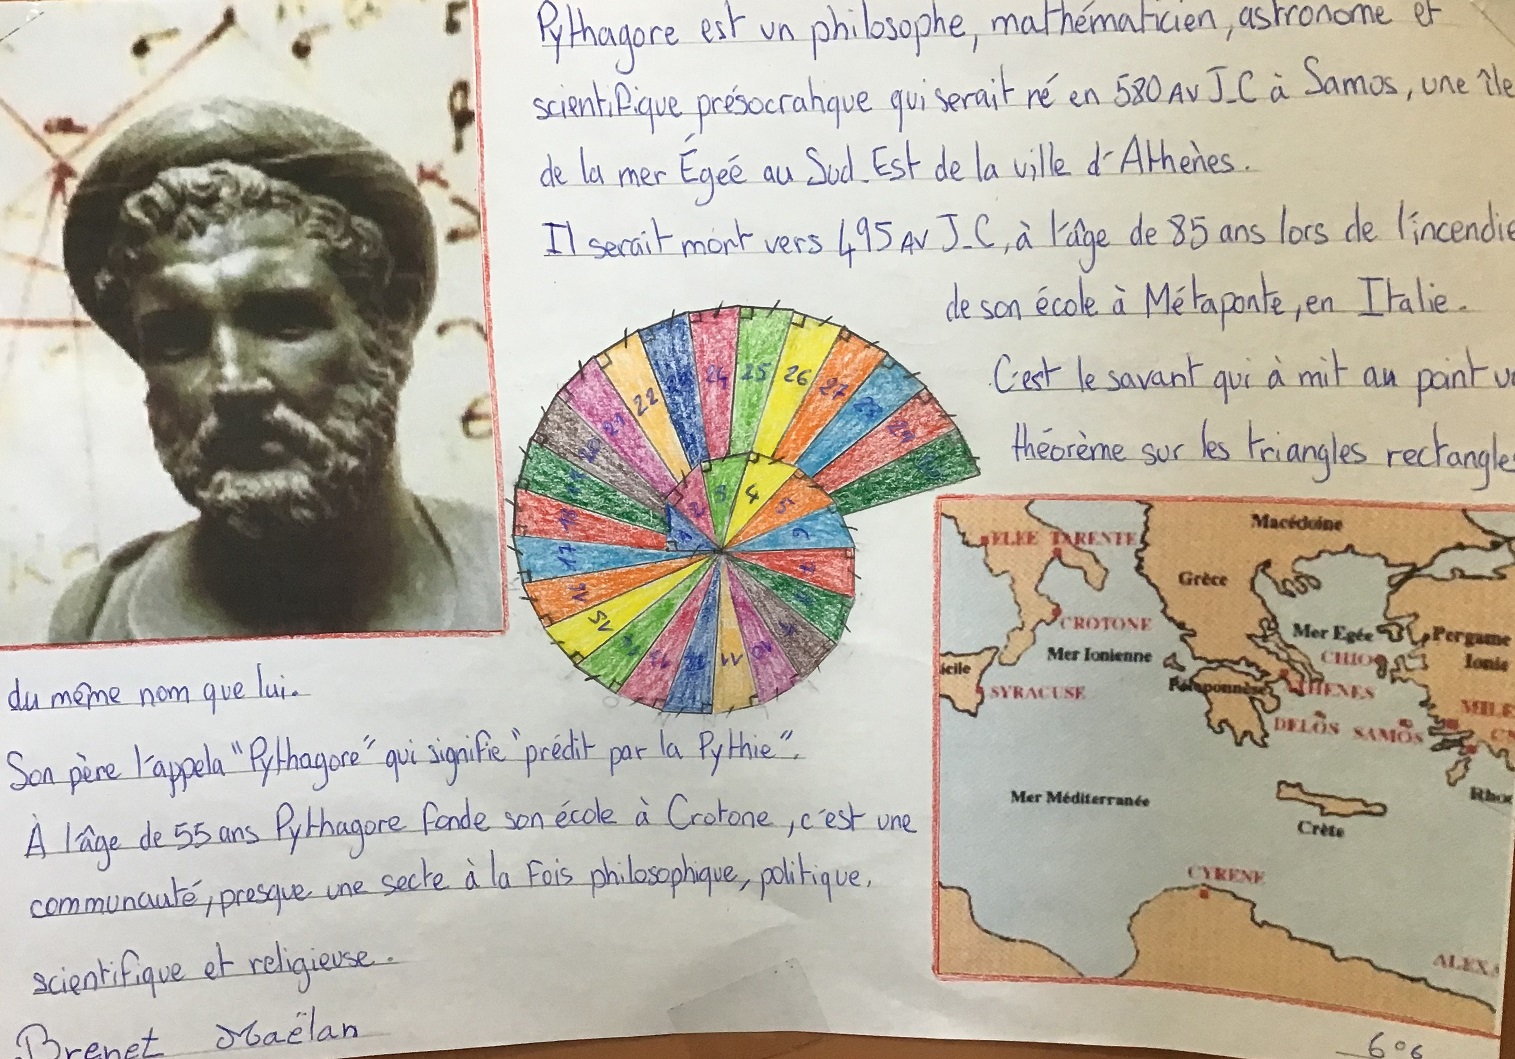 Pythagore est un philosophe, mathématicien, astronome et
scientifique présocratique qui serait né en 580 AV J-C à Samos, une île
de la mer Égeé au Sud-Est de la ville d'Athènes.
Il serait mort vers 495 AV J-C, à l'âge de 85 ans lors de l'incendie
de son école à Métaponte, en Italie.
C'est le savant qui à mit au point u
théorème sur les triangles rectangle
du même nom que lui.
Son père l'appela "Pythagore" qui signifie "prédit par la Pythie".
À l'âge de 55 ans Pythagore fonde son école à Crotone, c'est une
communauté, presque une secte à la Fois philosophique, politique,
scientifique et religieuse.
Brenet Maëlan
606
1
2
3
4
5
6
7
8
9
10
11
12
13
14
15
16
17
18
19
20
21
22
23
24
25
26
27
28
29
Macédoine
ELEE TARENTE
Grèce
CROTONE
Mer Egée Pergame
Mer Ionienne CHIO Ionie
icile
SYRACUSE Péloponnèse ATHENES
MILE
DELOS SAMOS
Mer Méditerranée Rho
Crète
CYRENE
ALEXA